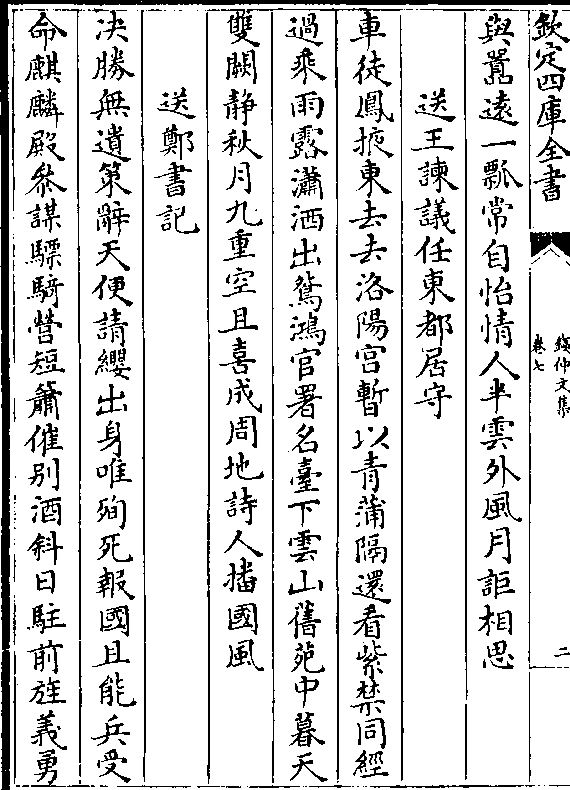 欽定四庫全書
錢仲文集
卷七
二
與囂遠一瓢常自怡情人半雲外風月詎相思
送王諫議任東都居守
車徒鳳掖東去去洛陽宮暫以青蒲隔還看紫禁同經
過乘雨露瀟洒出鴛鴻官署名臺下雲山舊苑中暮天
雙闕静秋月九重空且喜成周地詩人播國風
送鄭書記
决勝無遺策辭天便請纓出身唯殉死報國且能兵受
命麒麟殿叅謀驃騎營短簫催别酒斜日駐前旌義勇